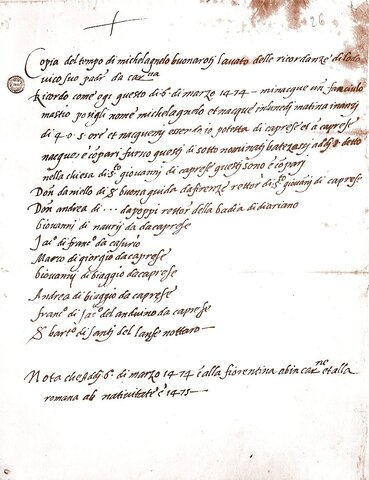 26
Copia del tempo di michelagnelo buonarotj cavato delle ricordanze di lodo
vico suo padr da car.na
Ricordo come ogi questo di 6 di marzo 1474 minacque un fanciulo
mastio posigli nome michelagnelo et nacque inlunedj matina inanzj
di 4 o 5 ore et nacquemj essendo io potesta di caprese et a caprese
nacque e conparj furno questj di sotto nominatj batezossj addj 8 detto
nella chiesa di sto giovannj di caprese questj sono e conparj
Don daniello di s buonaguida da firenze rettor di sto giovanj di caprese
Don andrea di ... da poppi rettor della badia di diariano
Giovannj di nannj da caprese
Jaco di franco da casurio
Marco di giorgio da caprese
Giovannj di biaggio da caprese
Andrea di biaggio da caprese
franco di jaco del anduino da caprese
S barto di santj del lanse nottaro
Nota che addj 6 di marzo 1474 è alla fiorentina ab in carne et alla
romana ab nativitate è 1475